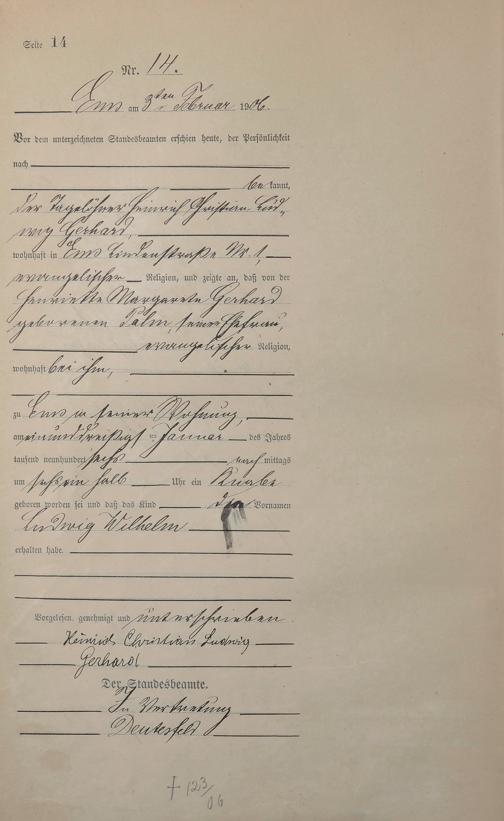 Seite 14
Nr. 14.
Ems am 3ten Februar 1906.
Vor dem unterzeichneten Standesbeamten erschien heute, der Persönlichkeit
nach
bekannt,
der Tagelöhner Heinrich Christian Lud-
wig Gerhard,
wohnhaft in Ems Lindenstraße Nr. 1,
evangelischer Religion, und zeigte an, daß von der
Henriette Margarete Gerhard
geborenen Palm, seiner Ehefrau,
evangelischer Religion,
wohnhaft bei ihm,
zu Ems in seiner Wohnung,
am einunddreißigsten Januar des Jahres
tausend neunhundert sechs nachmittags
um sechs ein halb Uhr ein Knabe
geboren worden sei und daß das Kind die Vornamen
Ludwig Wilhelm
erhalten habe.
Vorgelesen, genehmigt und unterschrieben
Heinrich Christian Ludwig
Gerhard
Der Standesbeamte.
In Vertretung
† 123/06